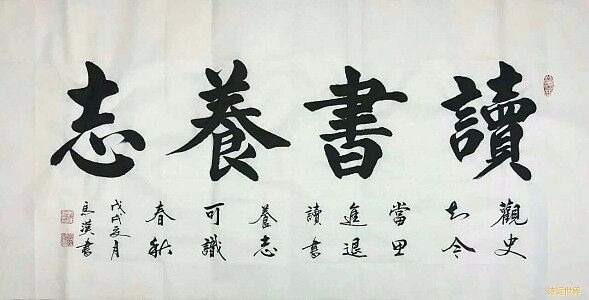 讀書養志
觀史
知今
當思
進退
讀書
養志
可識
春秋
戊戌夏月
馬漢書